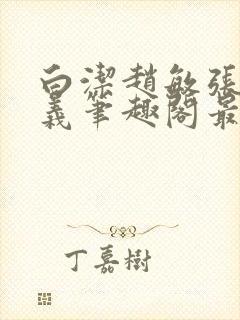 白潔趙敏張
義筆趣閣最
丁嘉樹